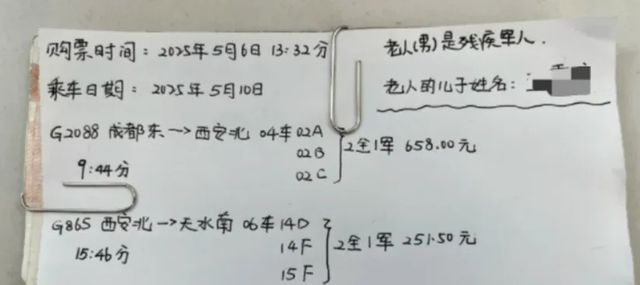 购票时间：2025年5月6日 13:32分
老人(男)是残疾军人.
乘车日期：2025年5月10日
老人的儿子姓名：
G2088 成都东→西安北 04车 02A
02B
02C
2全1军 658.00元
9:44分
G865 西安北→天水南 06车 14D
14F
15F
2全1军 251.50元
15:46分